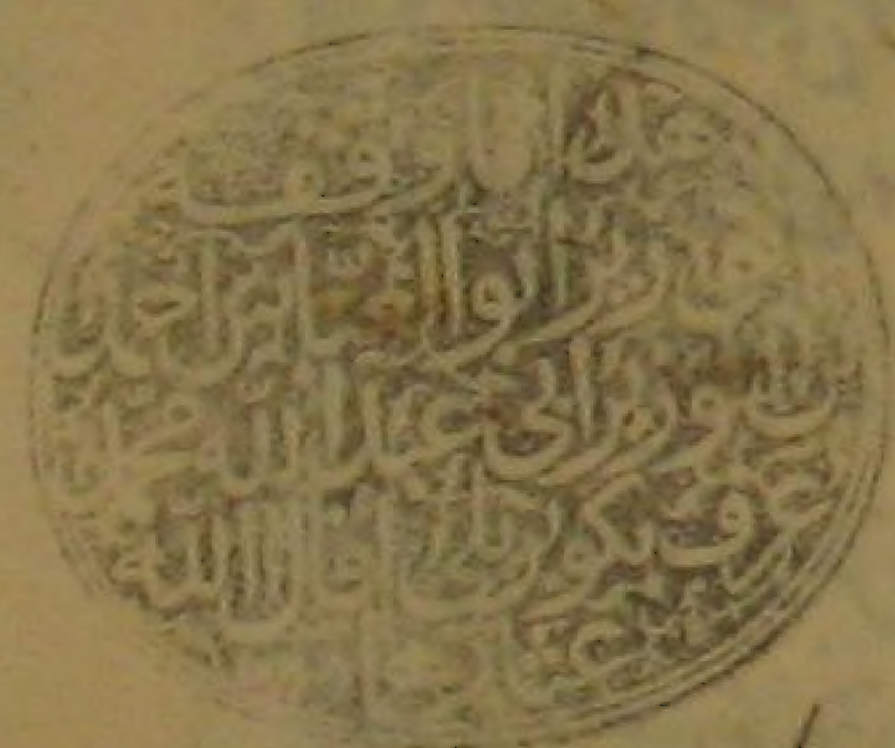 هذا ما وقفه
الوزير ابو العبّاس احمد
بن الوزير ابي عبد الله محمد
عرف بكوبريلي اقال الله
عثارهما